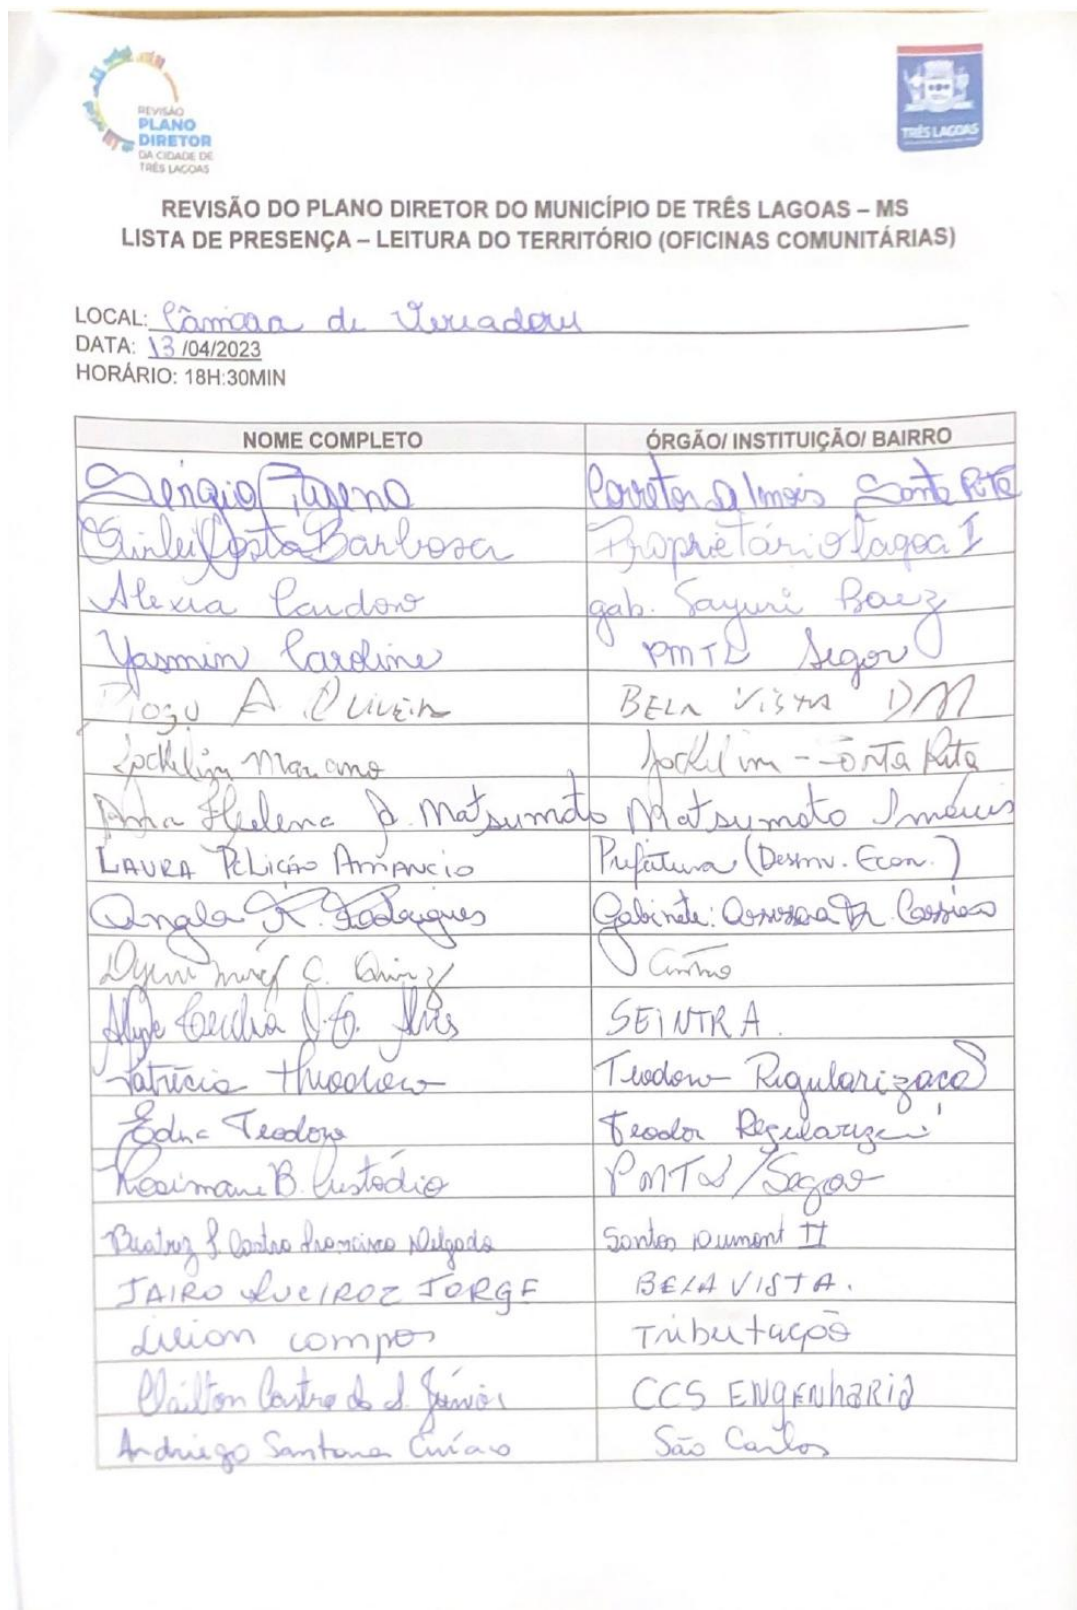 REVISÃO
PLANO
DIRETOR
DA CIDADE DE
TRÊS LAGOAS
TRÊS LAGOAS
REVISÃO DO PLANO DIRETOR DO MUNICÍPIO DE TRÊS LAGOAS – MS
LISTA DE PRESENÇA – LEITURA DO TERRITÓRIO (OFICINAS COMUNITÁRIAS)
LOCAL: Câmara de Vereadores
DATA: 13/04/2023
HORÁRIO: 18H:30MIN
NOME COMPLETO ÓRGÃO/ INSTITUIÇÃO/ BAIRRO
Sérgio Corretor D Imois Santa Rita
Costa Barbosa Proprietário lagoa I
Alexia Cardoso gab. Sayuri Baez
Yasmin Caroline PMTL Segov
A. Oliveira BELA VISTA DM
Jockelim Mariano Jockelim - Santa Rita
Anna Helena J. Matsumoto Matsumoto Imóveis
LAURA PELIÇÃO AMANCIO Prefeitura (Desenv. Econ.)
Angela R. Rodrigues Gabinete: Dr. Cassiano
C. Centro
Cecilia SEINTRA.
Patrícia Theodoro Teodoro Regularização
Edna Teodoro Teodor
Rosimane B. Custódio PMTL/Segov
Beatriz S. Castro Francisco Delgado Santos Dumont II
JAIRO QUEIROZ JORGE BELA VISTA.
Lilian campos Tributação
Clailton Castro de S. Júnior CCS ENGENHARIA
Andriego Santana São Carlos